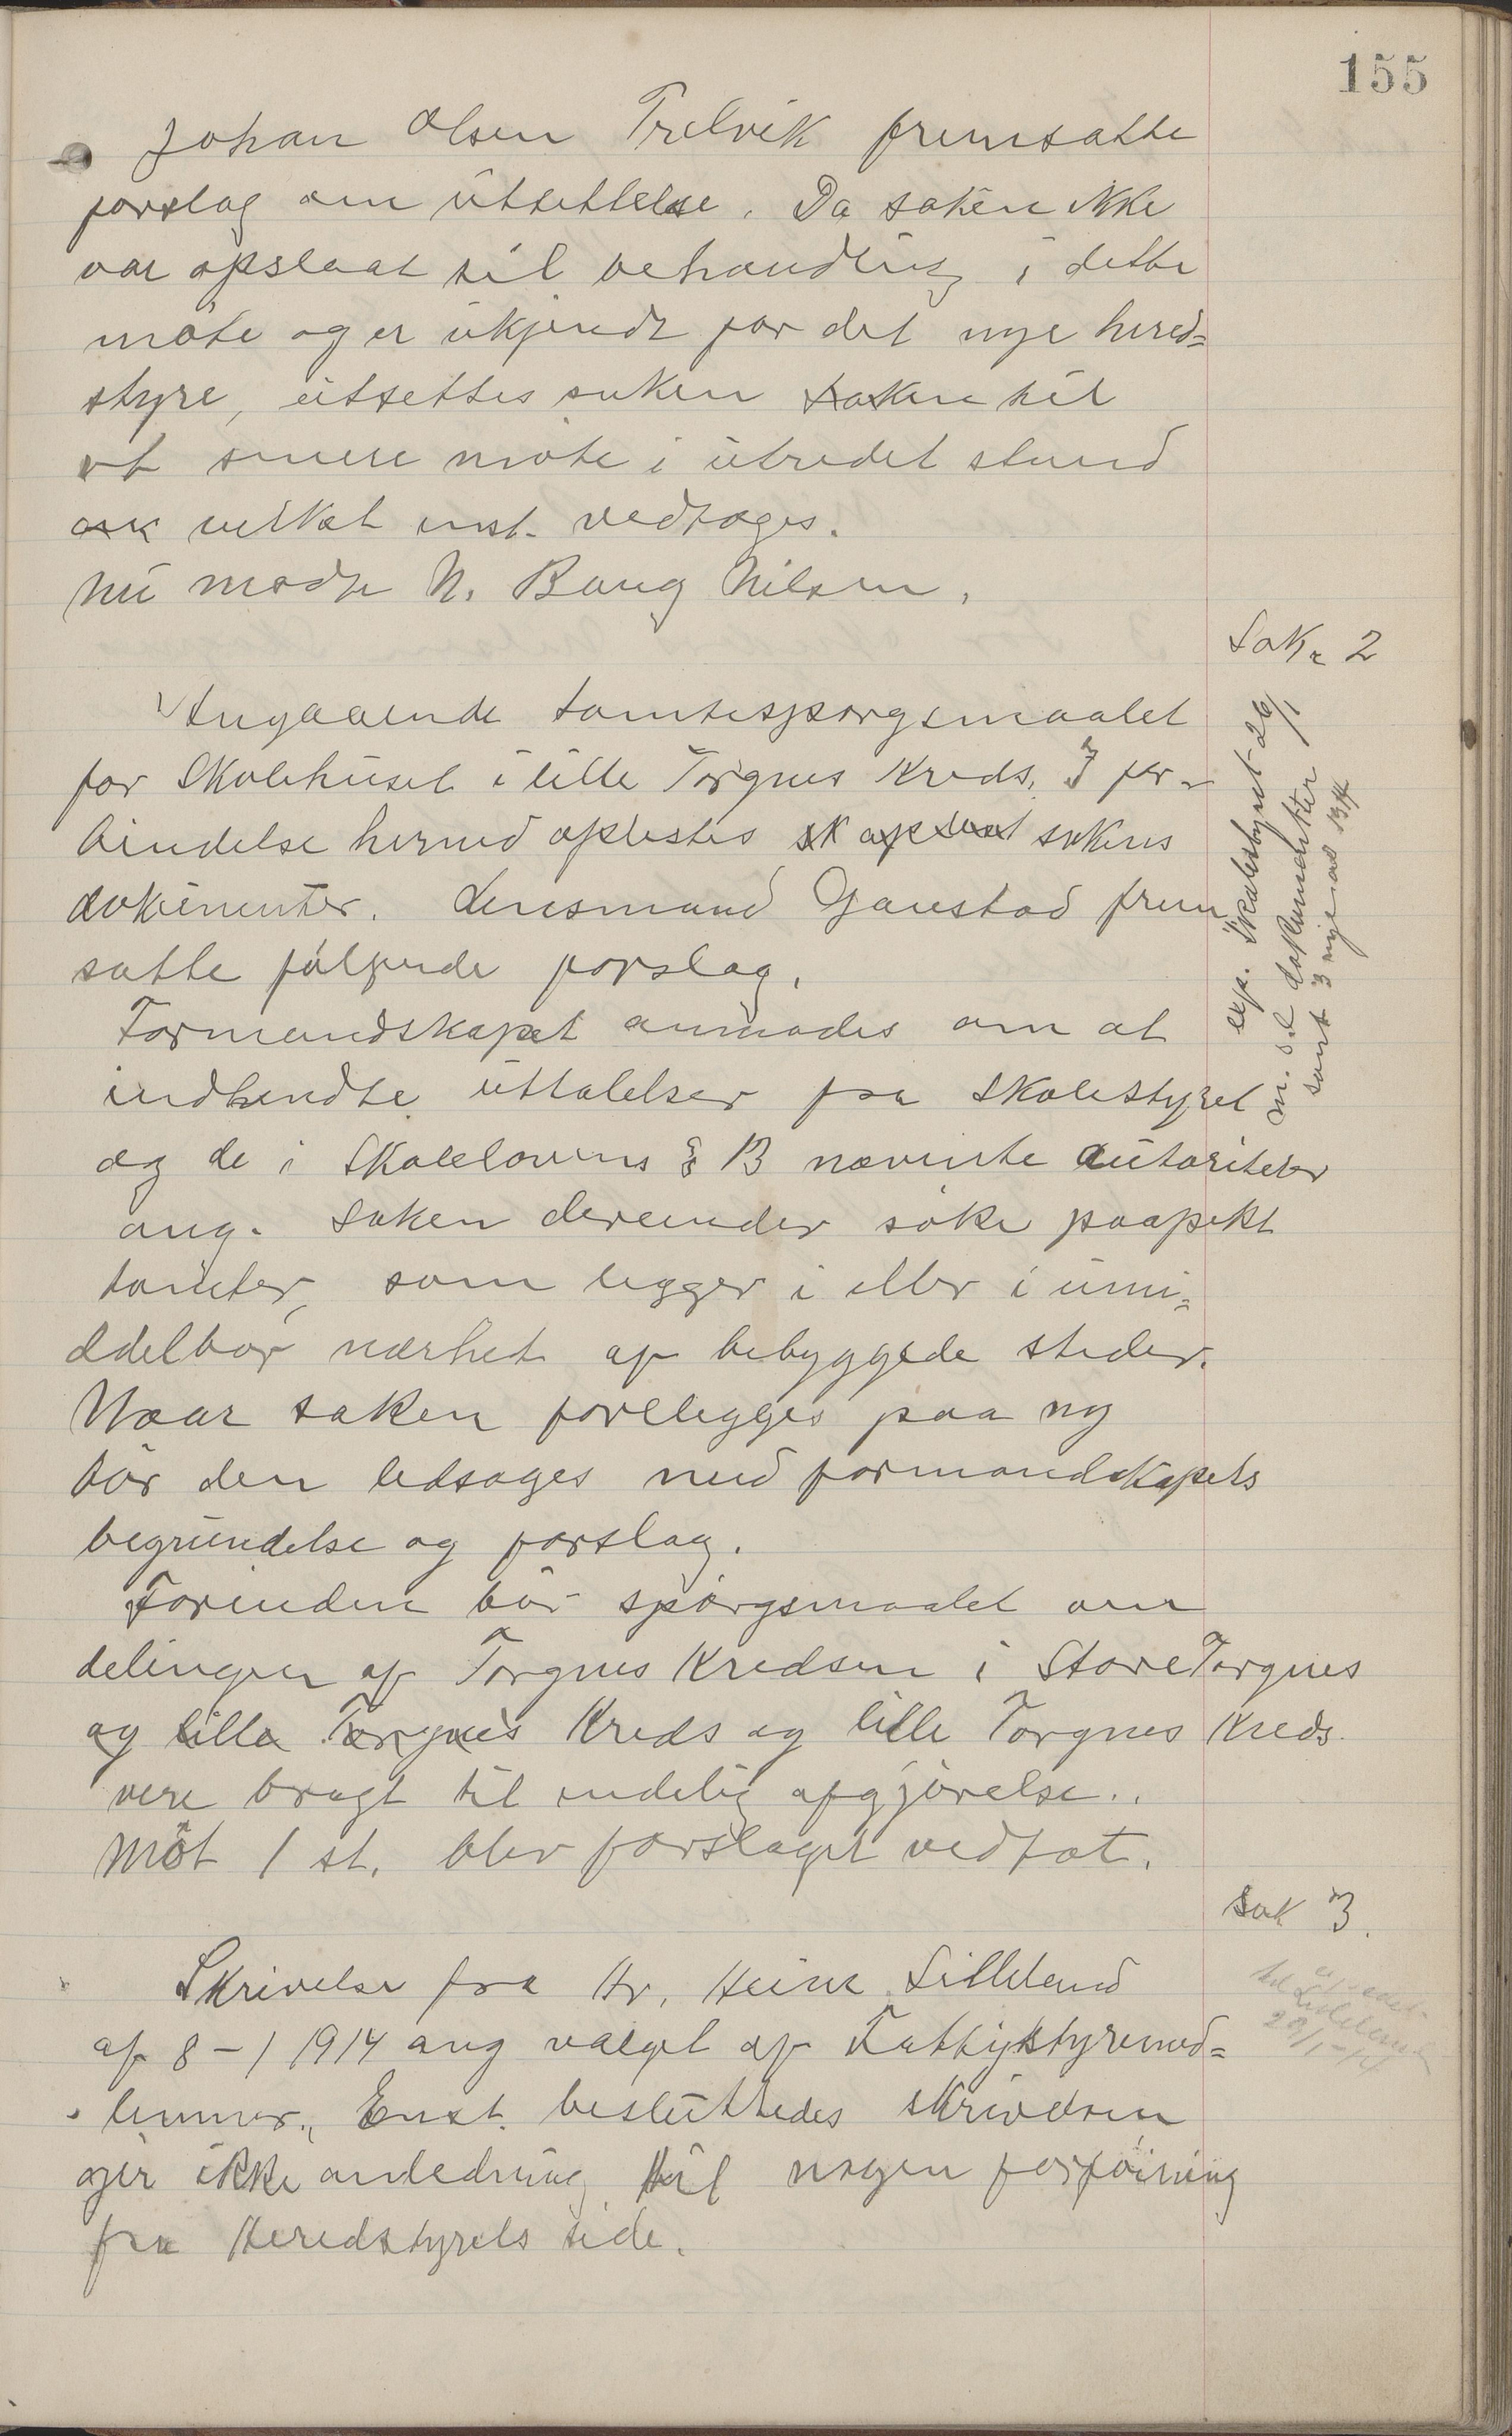 155
Johan Olsen Trelvik fremsatte
forslag om utsettelse. Da saken ikke
var opslaat til behandling i dette
møte og er ukjendt for det nye hered=
styre, utsettes saken saken til
et senere møte i utredet stand
ask enst. vedtoges.
Nu mødte N. Bang Nilsen.
Sak 2
Angaaende tomtespørgsmaalet
for Skolehuset i lille Torgnes Kreds. I for-
bindelse hermed oplestes sk opslaat sakens
dokumenter. Lensmand Gaustad frem
satte følgende forslag.
Formandskapet anmodes om at
indhendte uttalelser fra Skolestyret
og de i Skolelovens § 13 nævnte autoriteter
ang. saken dereunder søke paapekt
tomter, som ligger i eller i umi=
ddelbar nærhet af bebyggede steder.
Naar saken forelegges paa ny
bør den ledsages med formandskapets
begrundelse og forslag.
Forinden bør spørgsmaalet om
delingen af Torgnes Kredsen i Store Torgnes
og lille Torgnes Kreds og lille Torgnes Kreds
vere bragt til endelig afgjørelse..
Mot 1 st. blev forslaget vedtat.
exp. Skolestyret 26/1
m. dokumenter
samt 3 nye
Sak 3.
Skrivelse fra Hr. Heine Lilleland
af 8-1 1914 ang valget af Fattigstyremed=
lemmer. Enst. besluttedes skrivelsen
gir ikke anledning til nogen forføining
fra Heredstyrets side.
til Lilleland
29/1-14